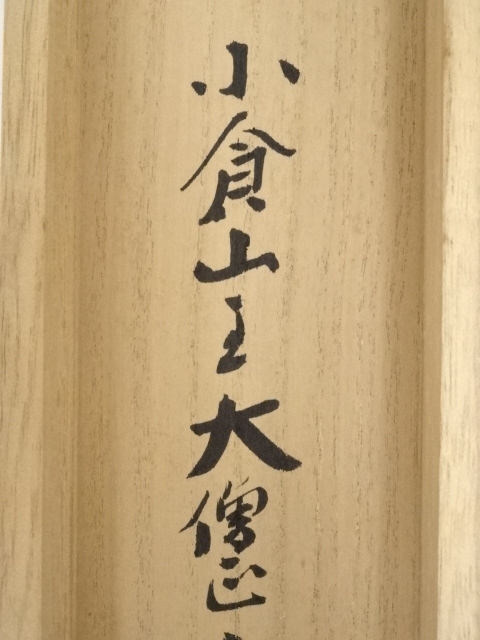 小倉山主大僧正